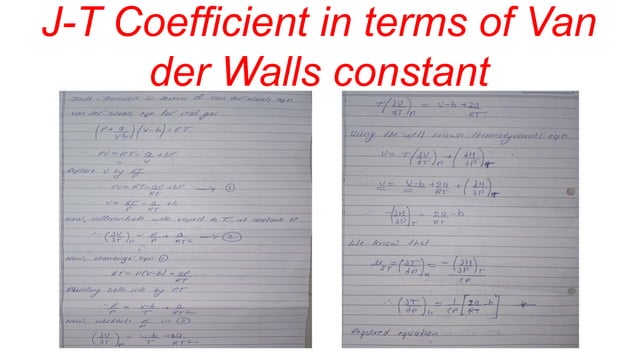 J-T Coefficient in terms of Van
der Walls constant
in terms of van der waals eqn
van der waals eqn for real gas
(P + a/V²)(V-b) = RT
∴ PV = RT - a/V + bP
Replace V by RT/P
∴ PV = RT - aP/RT + bP → ①
V = RT/P - a/RT + b
Now, differentiate with respect to T at constant P
∴ (∂V/∂T)P = R/P + a/RT² → ②
Now, rearrange eqn ①
RT = P(V-b) + aP/RT
Dividing both side by PT
∴ R/P = V-b/T + a/RT²
Now, R/P in ②
(∂V/∂T)P = V-b/T + 2a/RT²
T(∂V/∂T)P = V-b + 2a/RT
Using the well known thermodynamic eqn
V = T(∂V/∂T)P + (∂H/∂P)T
∴ V = V-b + 2a/RT + (∂H/∂P)T
∴ -(∂H/∂P)T = 2a/RT - b
We know that
μJT = (∂T/∂P)H = -(∂H/∂P)T/CP
∴ (∂T/∂P)H = 1/CP [2a/RT - b]
Required equation